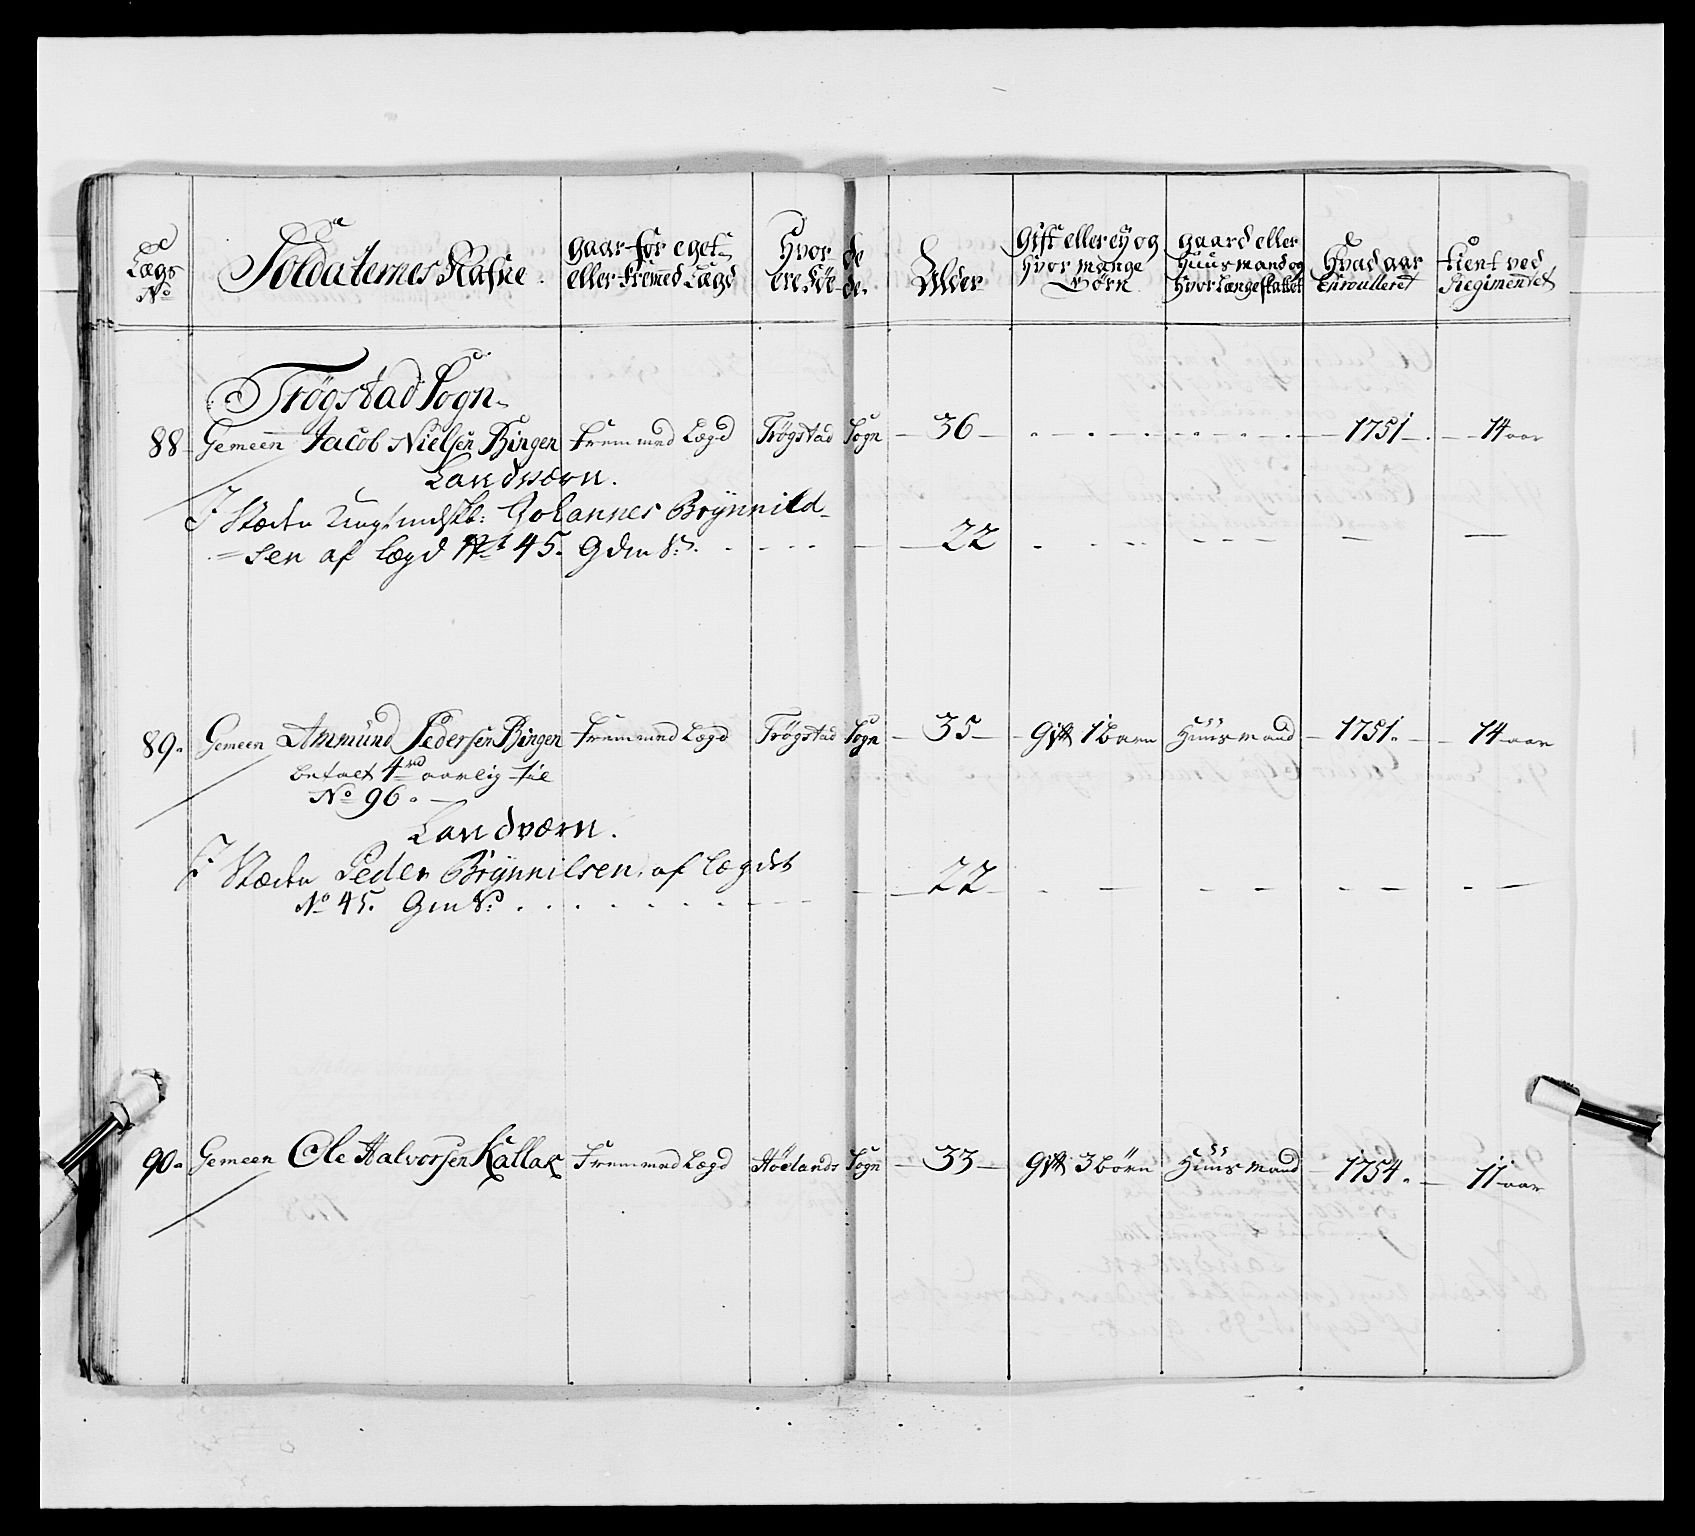 Lægs No | Soldaternes Nafne. | gaar for eget eller fremed Lægd | Hvor de ere Föede. | Alder | Gift eller ey og hvor mange Börn | gaard eller Huusmand og hvor længe | Hvad aar Enroulleret | tient ved Regimentet
Trögstad Sogn
88 Gemeen Jacob Nielsen Bingen fremmed Lægd Trögstad Sogn 36 1751 14 aar
Landværn.
I Stæden Johannes Brynnild-
sen af Lægd No 45. 22
89. Gemeen Ammund Pedersen Bingen fremmed Lægd Trögstad Sogn 35 Gift 1 barn Huusmand 1751. 14 aar
betalt 4 rd aarlig til
No 96.
Landværn.
I Stæden Peder Brynnilsen, af Lægdet 22
No 45.
90. Gemeen Ole Halvorsen Kallak fremmed Lægd Höelands Sogn 33 Gift 3 börn Huusmand 1754. 11 aar